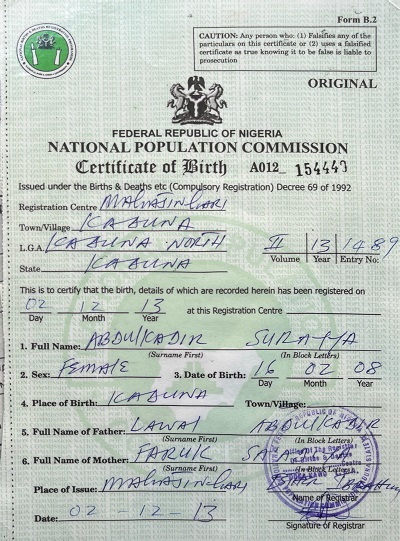 Form B.2
CAUTION: Any person who: (1) Falsifies any of the
particulars on this certificate or (2) uses a falsified
certificate as true knowing it to be false is liable to
prosecution
ORIGINAL
FEDERAL REPUBLIC OF NIGERIA
NATIONAL POPULATION COMMISSION
Certificate of Birth A012_ 154449
Issued under the Births & Deaths etc (Compulsory Registration) Decree 69 of 1992
Registration Centre
Town/Village KADUNA
L.G.A. KADUNA NORTH II 13 1489
Volume Year Entry No:
State KADUNA
This is to certify that the birth, details of which are recorded herein has been registered on
02 12 13 at this Registration Centre
Day Month Year
1. Full Name: ABDULKADIR SURAYYA
(Surname First) (In Block Letters)
2. Sex: FEMALE 3. Date of Birth: 16 02 08
Day Month Year
4. Place of Birth: KADUNA Town/Village:
5. Full Name of Father: LAWAL ABDULKADIR
(Surname First) (In Block Letters)
6. Full Name of Mother: FARUK
(Surname First) (In Block Letters)
Place of Issue:
Name of Registrar
Date: 02 - 12 - 13
Signature of Registrar